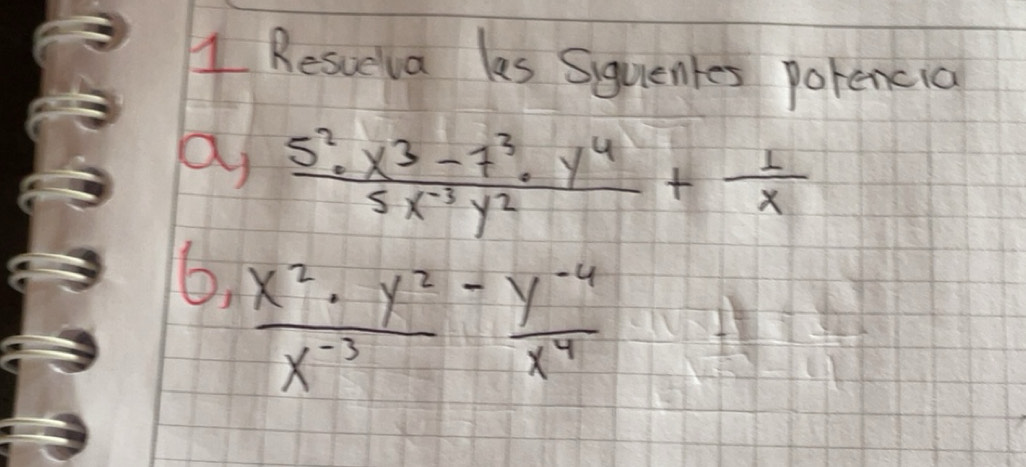 1 Resuelva las Siguientes potencia
a, 5². x3 - 7³. y⁴ / 5x⁻³y² + 1/x
b, x². y² / x⁻³ - y⁻⁴ / x⁴